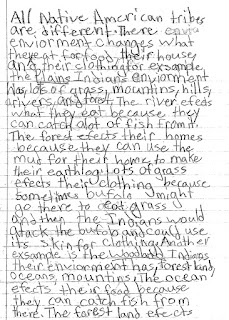 All Native American tribes
are different. There enviro
enviorment changes what
they eat for food, their house,
and their clothing for exsample,
the Plains Indians enviorment
has lots of grass, mountins, hills,
rivers, and forest. The river efeds
what they eat because they
can catch alot of fish from it.
The forest efects their homes
because they can use the
mud for their home, to make
their earthlog. Lots of grass
efects their clothing because
sometimes bufalo might
go there to eat grass
and then the Indians would
attack the bufalo and could use
its skin for clothing. Another
exsample is the Woodland Indians
their enviorment has, forest land,
oceans, mountins, The ocean
efects their food because
they can catch fish from
there. The forest land efects